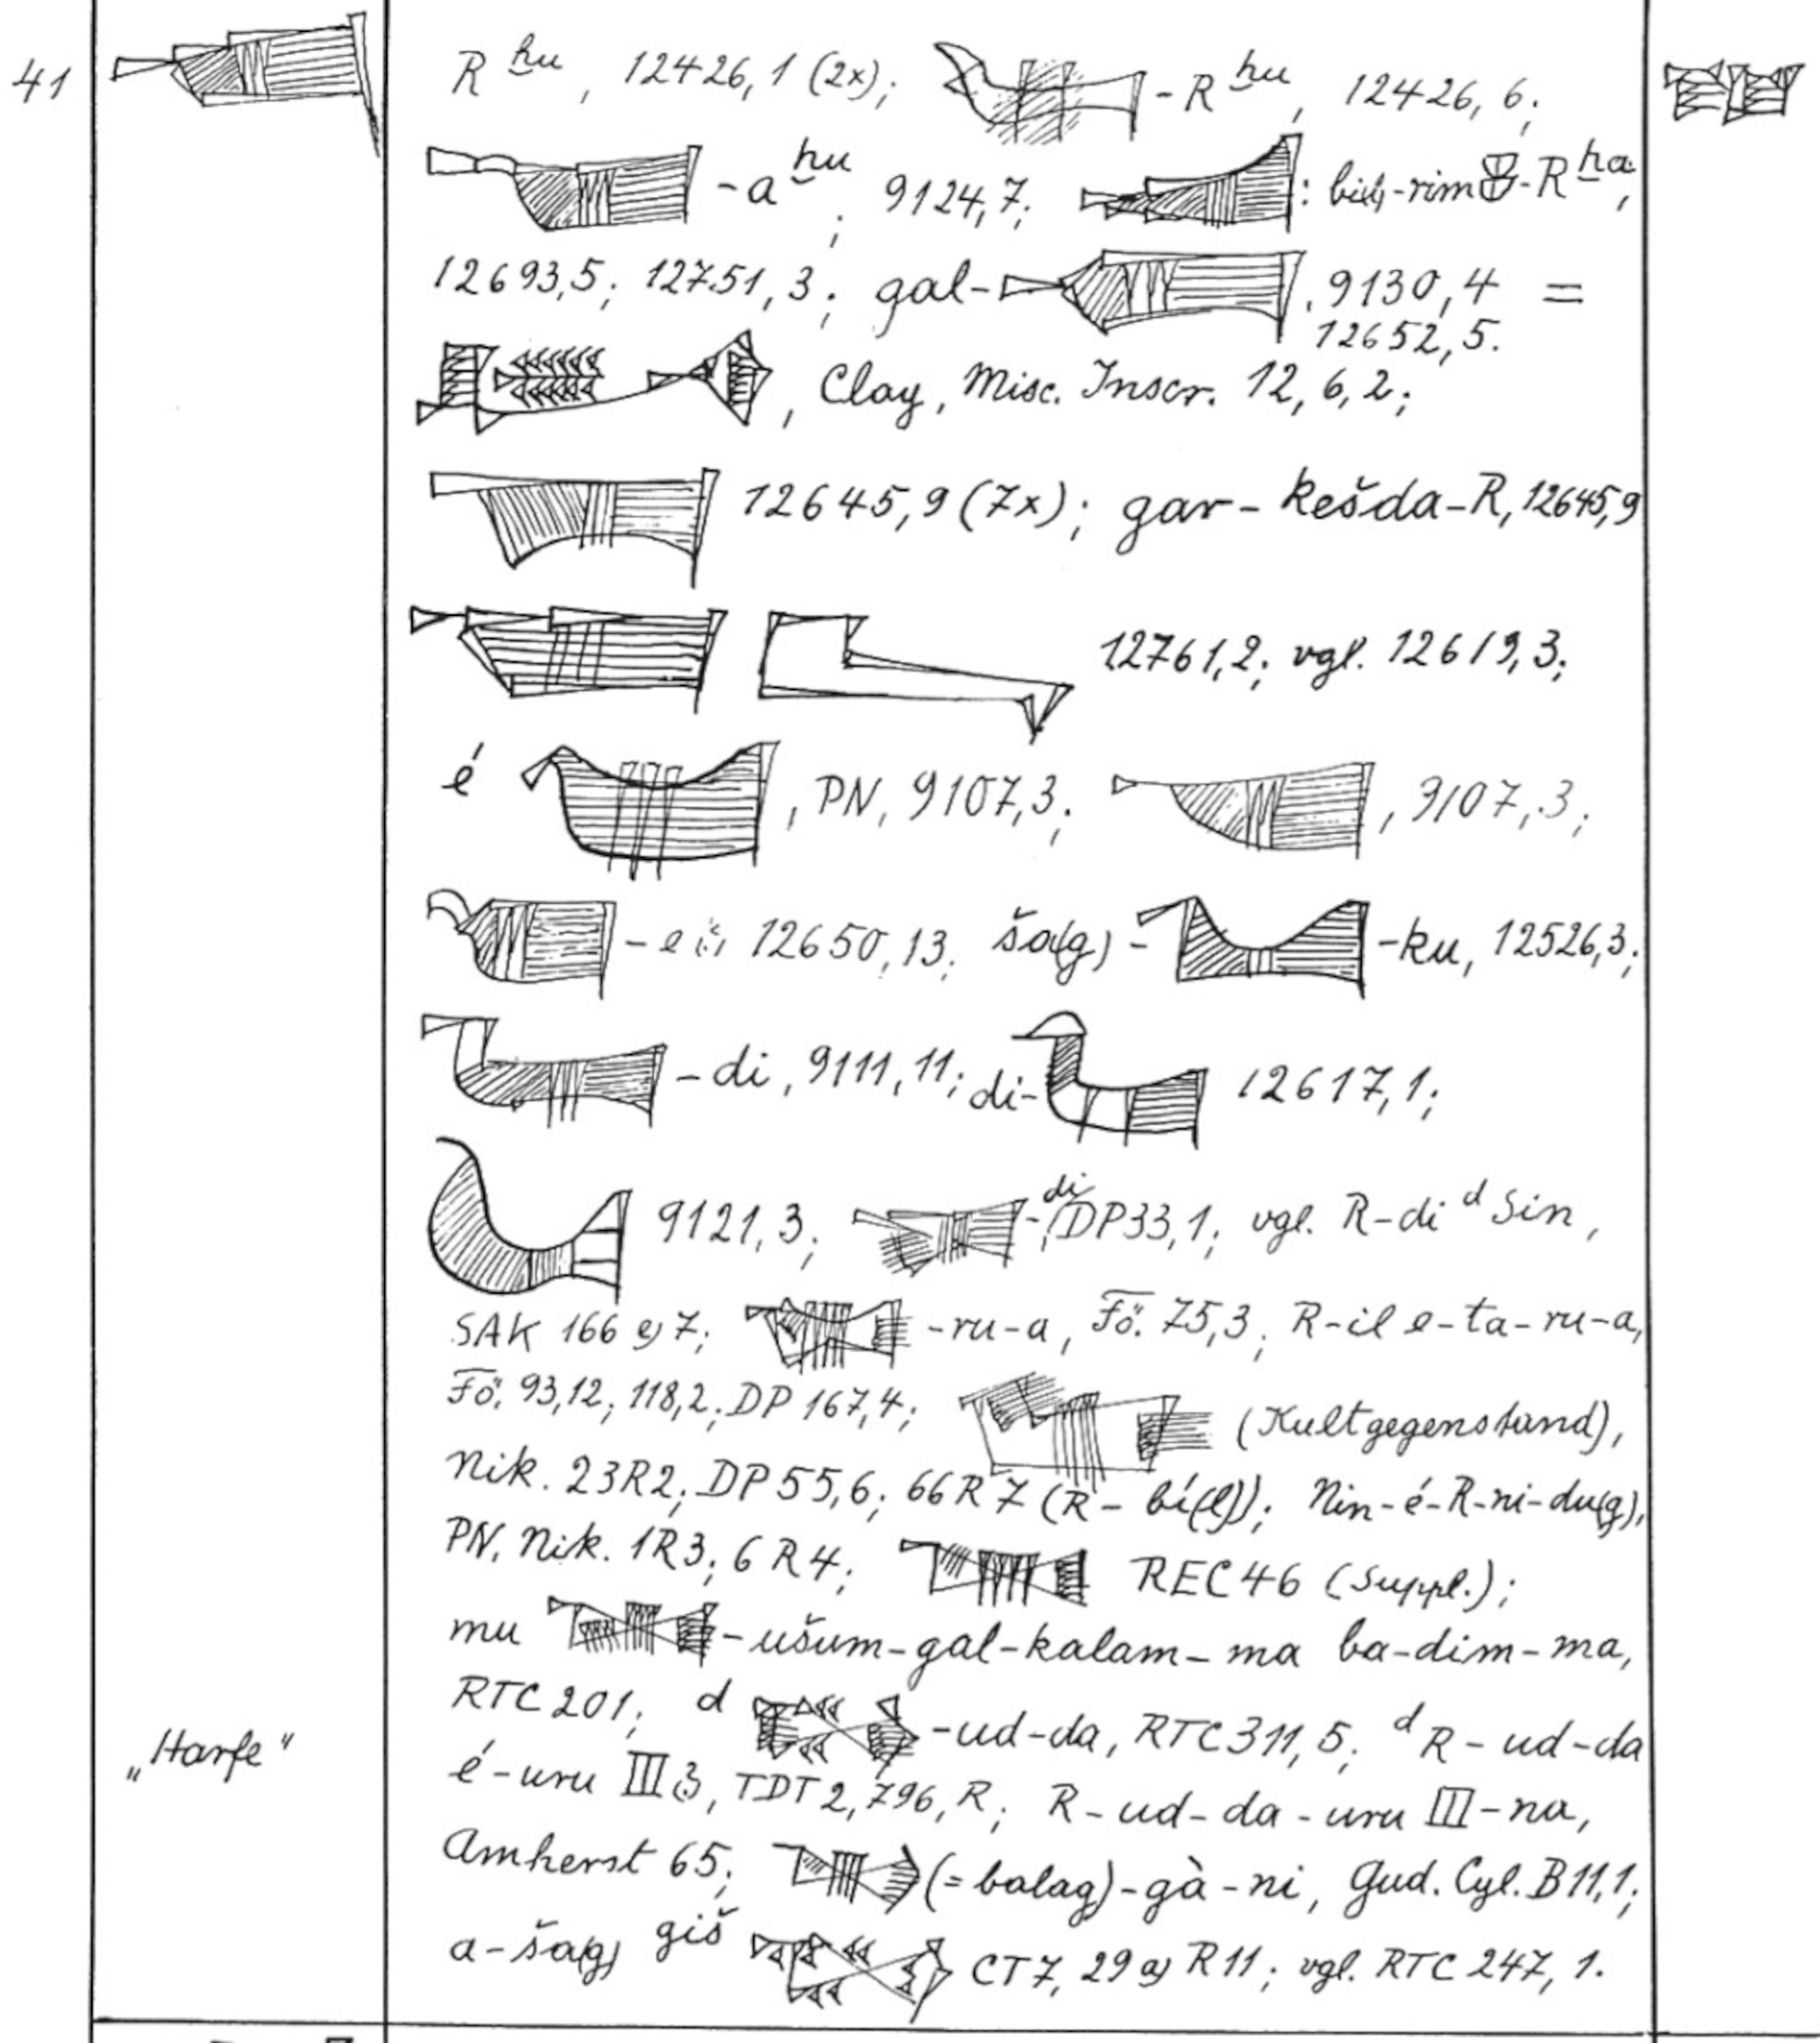 41 R ḫu, 12426,1 (2x); -R ḫu, 12426, 6;
-a ḫu; 9124,7; : -rim -R ḫa,
12693,5; 12751,3; gal- , 9130,4 =
12652,5.
, Clay, Misc. Inscr. 12, 6, 2;
12645,9 (7x); gar-kešda-R, 12645,9
12761,2; vgl. 12619,3;
é , PN, 9107,3; , 9107,3;
12650,13; ša(g)- -ku, 12526,3;
-di, 9111,11; di- 12617,1;
9121,3; -di, DP33,1; vgl. R-di d Sin,
SAK 166 e) 7; -ru-a, Fö. 75,3; R-il e-ta-ru-a,
Fö. 93,12; 118,2; DP 167,4; (Kultgegenstand),
Nik. 23R2; DP55,6; 66R7 (R-bí(l)); Nin-é-R-ni-du(g),
PN, Nik. 1R3; 6R4; REC46 (Suppl.);
mu -ušum-gal-kalam-ma ba-dim-ma,
RTC 201; d -ud-da, RTC311,5; d R-ud-da
„Harfe“ é-uru III, TDT2, 796, R; R-ud-da-uru III-na,
Amherst 65; (=balag)-gà-ni, Gud. Cyl. B11,1;
a-ša(g) giš CT7, 29a) R11; vgl. RTC 247, 1.